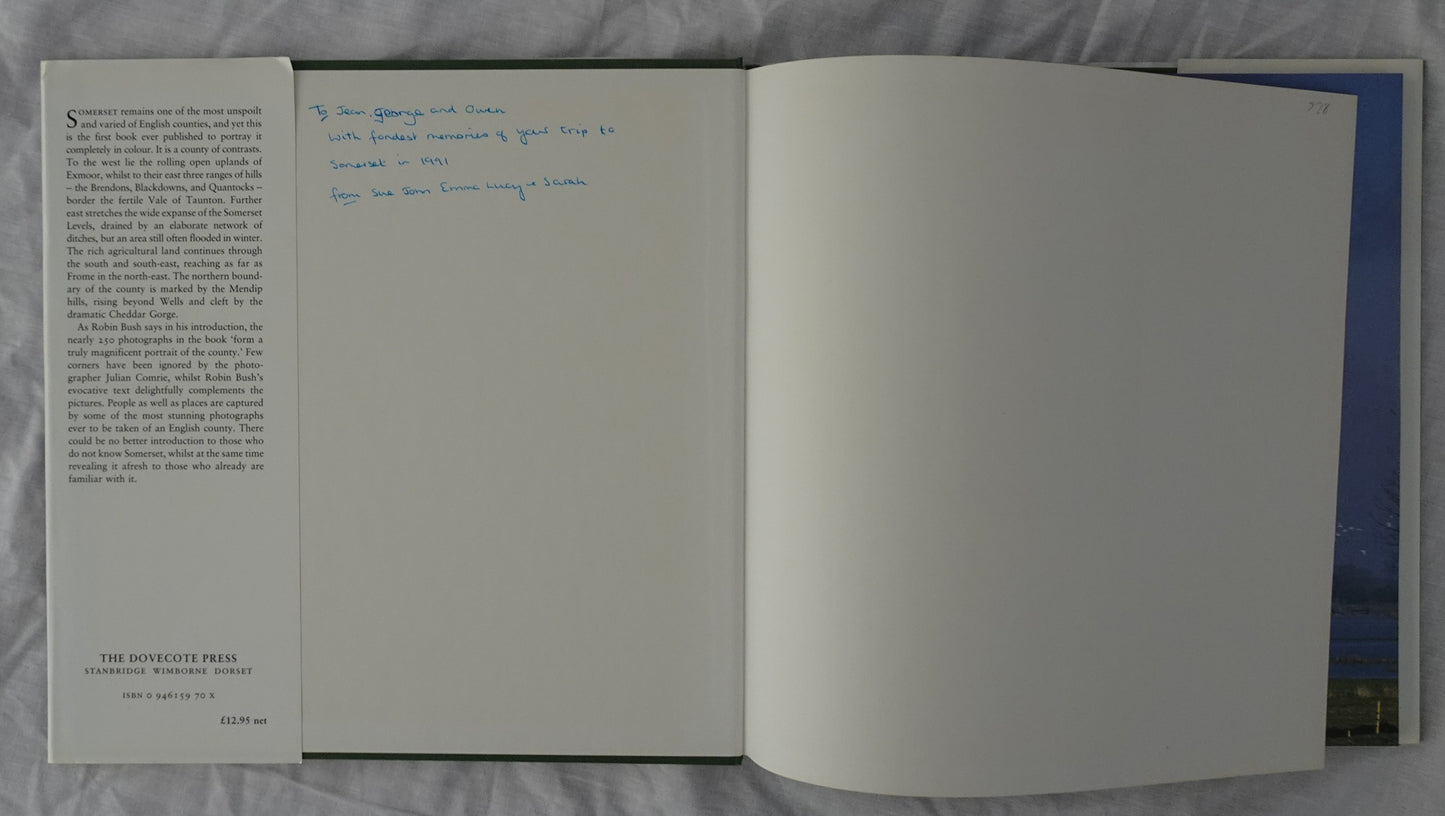 SOMERSET remains one of the most unspoilt
and varied of English counties, and yet this
is the first book ever published to portray it
completely in colour. It is a county of contrasts.
To the west lie the rolling open uplands of
Exmoor, whilst to their east three ranges of hills
– the Brendons, Blackdowns, and Quantocks –
border the fertile Vale of Taunton. Further
east stretches the wide expanse of the Somerset
Levels, drained by an elaborate network of
ditches, but an area still often flooded in winter.
The rich agricultural land continues through
the south and south-east, reaching as far as
Frome in the north-east. The northern bound-
ary of the county is marked by the Mendip
hills, rising beyond Wells and cleft by the
dramatic Cheddar Gorge.
As Robin Bush says in his introduction, the
nearly 250 photographs in the book ‘form a
truly magnificent portrait of the county.’ Few
corners have been ignored by the photo-
grapher Julian Comrie, whilst Robin Bush’s
evocative text delightfully complements the
pictures. People as well as places are captured
by some of the most stunning photographs
ever to be taken of an English county. There
could be no better introduction to those who
do not know Somerset, whilst at the same time
revealing it afresh to those who already are
familiar with it.
THE DOVECOTE PRESS
STANBRIDGE WIMBORNE DORSET
ISBN 0 946159 70 X
£12.95 net
To Jean, george and Owen
With fondest memories of your trip to
Somerset in 1991
from Sue John Emma Lucy + Sarah